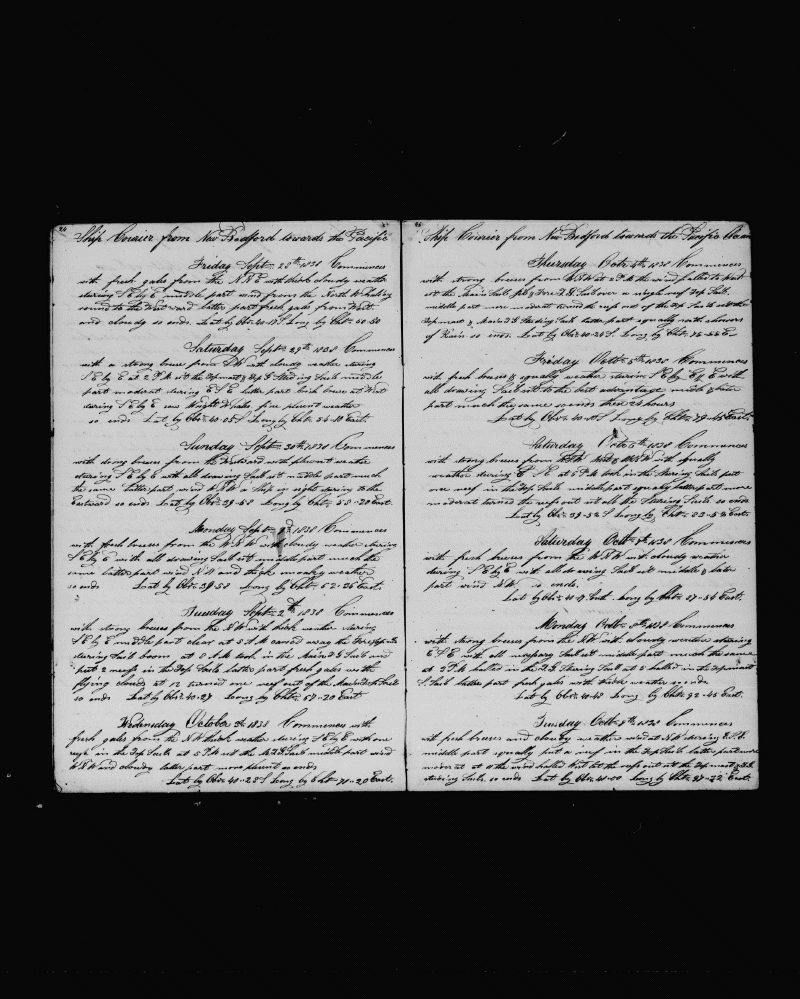 24
Ship Courier from New Bedford towards the Pacific
Friday Sept 28th 1838 Commences
with fresh gales from the N N E with thick cloudy weather
steering S E by E middle part wind from the North W
round to the Westward latter part fresh gales from West
and cloudy so ends Lat by Obs 40-17 S Long by Cht 50-50
Saturday Sept 29th 1838 Commences
with a strong breese from S W with cloudy weather steering
S E by E at 2 P M set the Topmast & Top G Stearing Sails middle
part moderat stering E S E latter part brisk breese at West
stering S E by E saw Wright Whales fine plesent weather
so ends Lat by Obs 40-05 S Long by Cht 54-10 East
Sunday Sept 30th 1838 Commences
with strong breeses from the Westward with plesant weather
stearing S E by E with all drawing Sail set middle part much
the same latter part wind W N W a Ship in sight stering to the
Eastward so ends Lat by Obs 39-58 Long by Cht 58-20 East
Monday Sept 1838 Commences
with fresh breeses from the W N W with cloudy weather stering
S E by E with all drawing Sail set middle part much the
same latter part wind N W and thick smokey weather
so ends Lat by Obs 39-58 Long by Cht 62-26 East
Tuesday Sept 2th 1838 Commences
with strong breeses from the N W with thick weather stering
S E by E middle part clear at 5 A M carried away the Fore Topmast
stering Sail boom at 8 A M took in the Main T G Sail and
put 2 reefs in the Top Sails latter part fresh gales with
flying clouds at 12 turned one reef out of the Main Top Sail
so ends Lat by Obs 40-27 Long by Cht 67-20 East
Wednesday October 3th 1838 Commences with
fresh gales from the N W thick weather stering S E by E with one
reefe in the Top Sails at 2 P M set the M T G Sail middle part wind
W N W and cloudy latter part more plesent so ends
Lat by Obs 40-28 S Long by Cht 71-20 East
Ship Courier from New Bedford towards the Pacific Ocean
Thursday Octr 4th 1838 Commences
with strong breeses from W N W at 2 P M the wind
set the Main Sail Jib & Fore T G Sail over a single reef Top Sail
middle part more moderat turned the reefs out of the Top Sails set the
Topmast & Main T G Stearing Sails latter part squally with showers
of Rain so ends Lat by Obs 40-20 S Long by Cht 75-55 E
Friday Octr 5th 1838 Commences
with fresh breeses & squally weather sterin S E by E & E with
all drawing Sail set to the best advantage middle & latter
part much the same so ends these 24 hours
Lat by Obs 40-10 S Long by Cht 79-45 East
Saturday Octr 6th 1838 Commences
with strong breeses from W N W with squally
weather stering E S E at 2 P M took in the Stering Sails put
one reef in the Top Sails middle part squaly latter part more
moderat turned the reefs out set all the Stearing Sails so ends
Lat by Obs 39-52 S Long by Cht 83-52 East
Saturday Octr 7th 1838 Commences
with fresh breeses from the W N W with cloudy weather
stering S E by E with all drawing Sail set middle & later
part wind N W so ends
Lat by Obs 40-7 South Long by Cht 87-54 East
Monday Octr 8th 1838 Commences
with strong breeses from the N W with cloudy weather stearing
E S E with all nesepary Sail set middle part much the same
at 2 P M halled in the T G Stearing Sail at 3 halled in the Topmast
S Sail latter part fresh gales with thick weather so ends
Lat by Obs 40-40 Long by Cht 92-45 East
Tuesday Octr 9th 1838 Commences
with fresh breeses and cloudy weather wind at N W stering E S E
middle part squally put a reef in the Top Sails latter part more
moderat at 11 the wind halled West let the reefs out set the Topmast & T G
stearing Sails so ends Lat by Obs 41-00 Long by Cht 97-22 East